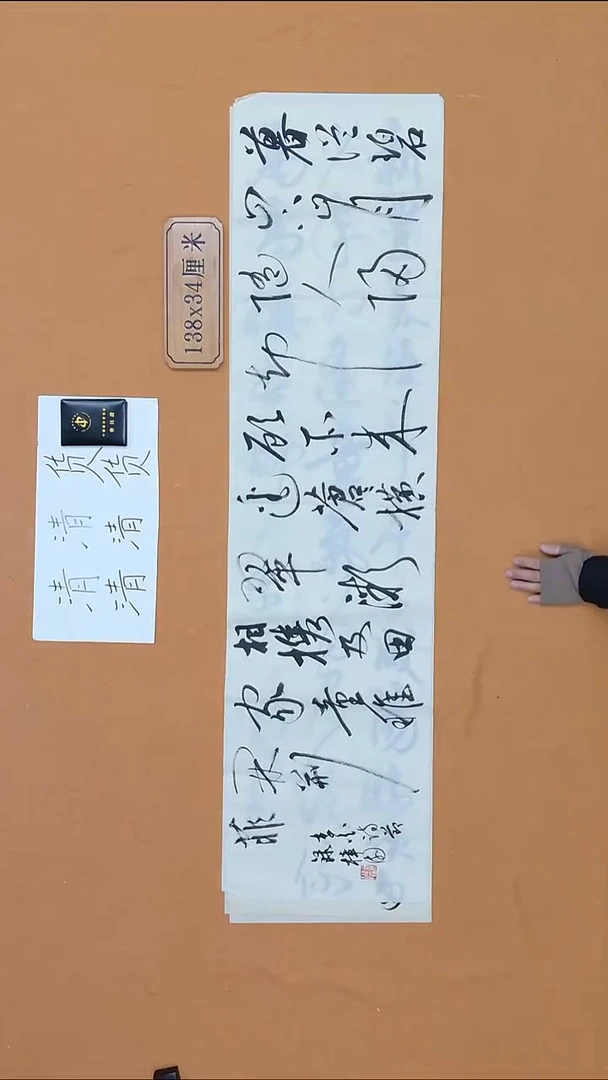 暮从碧
山下山月
随人归
却
顾所来
径苍横
翠微
相携及田
家童稚
开荆
扉
138x34厘米
货货
清清
清清